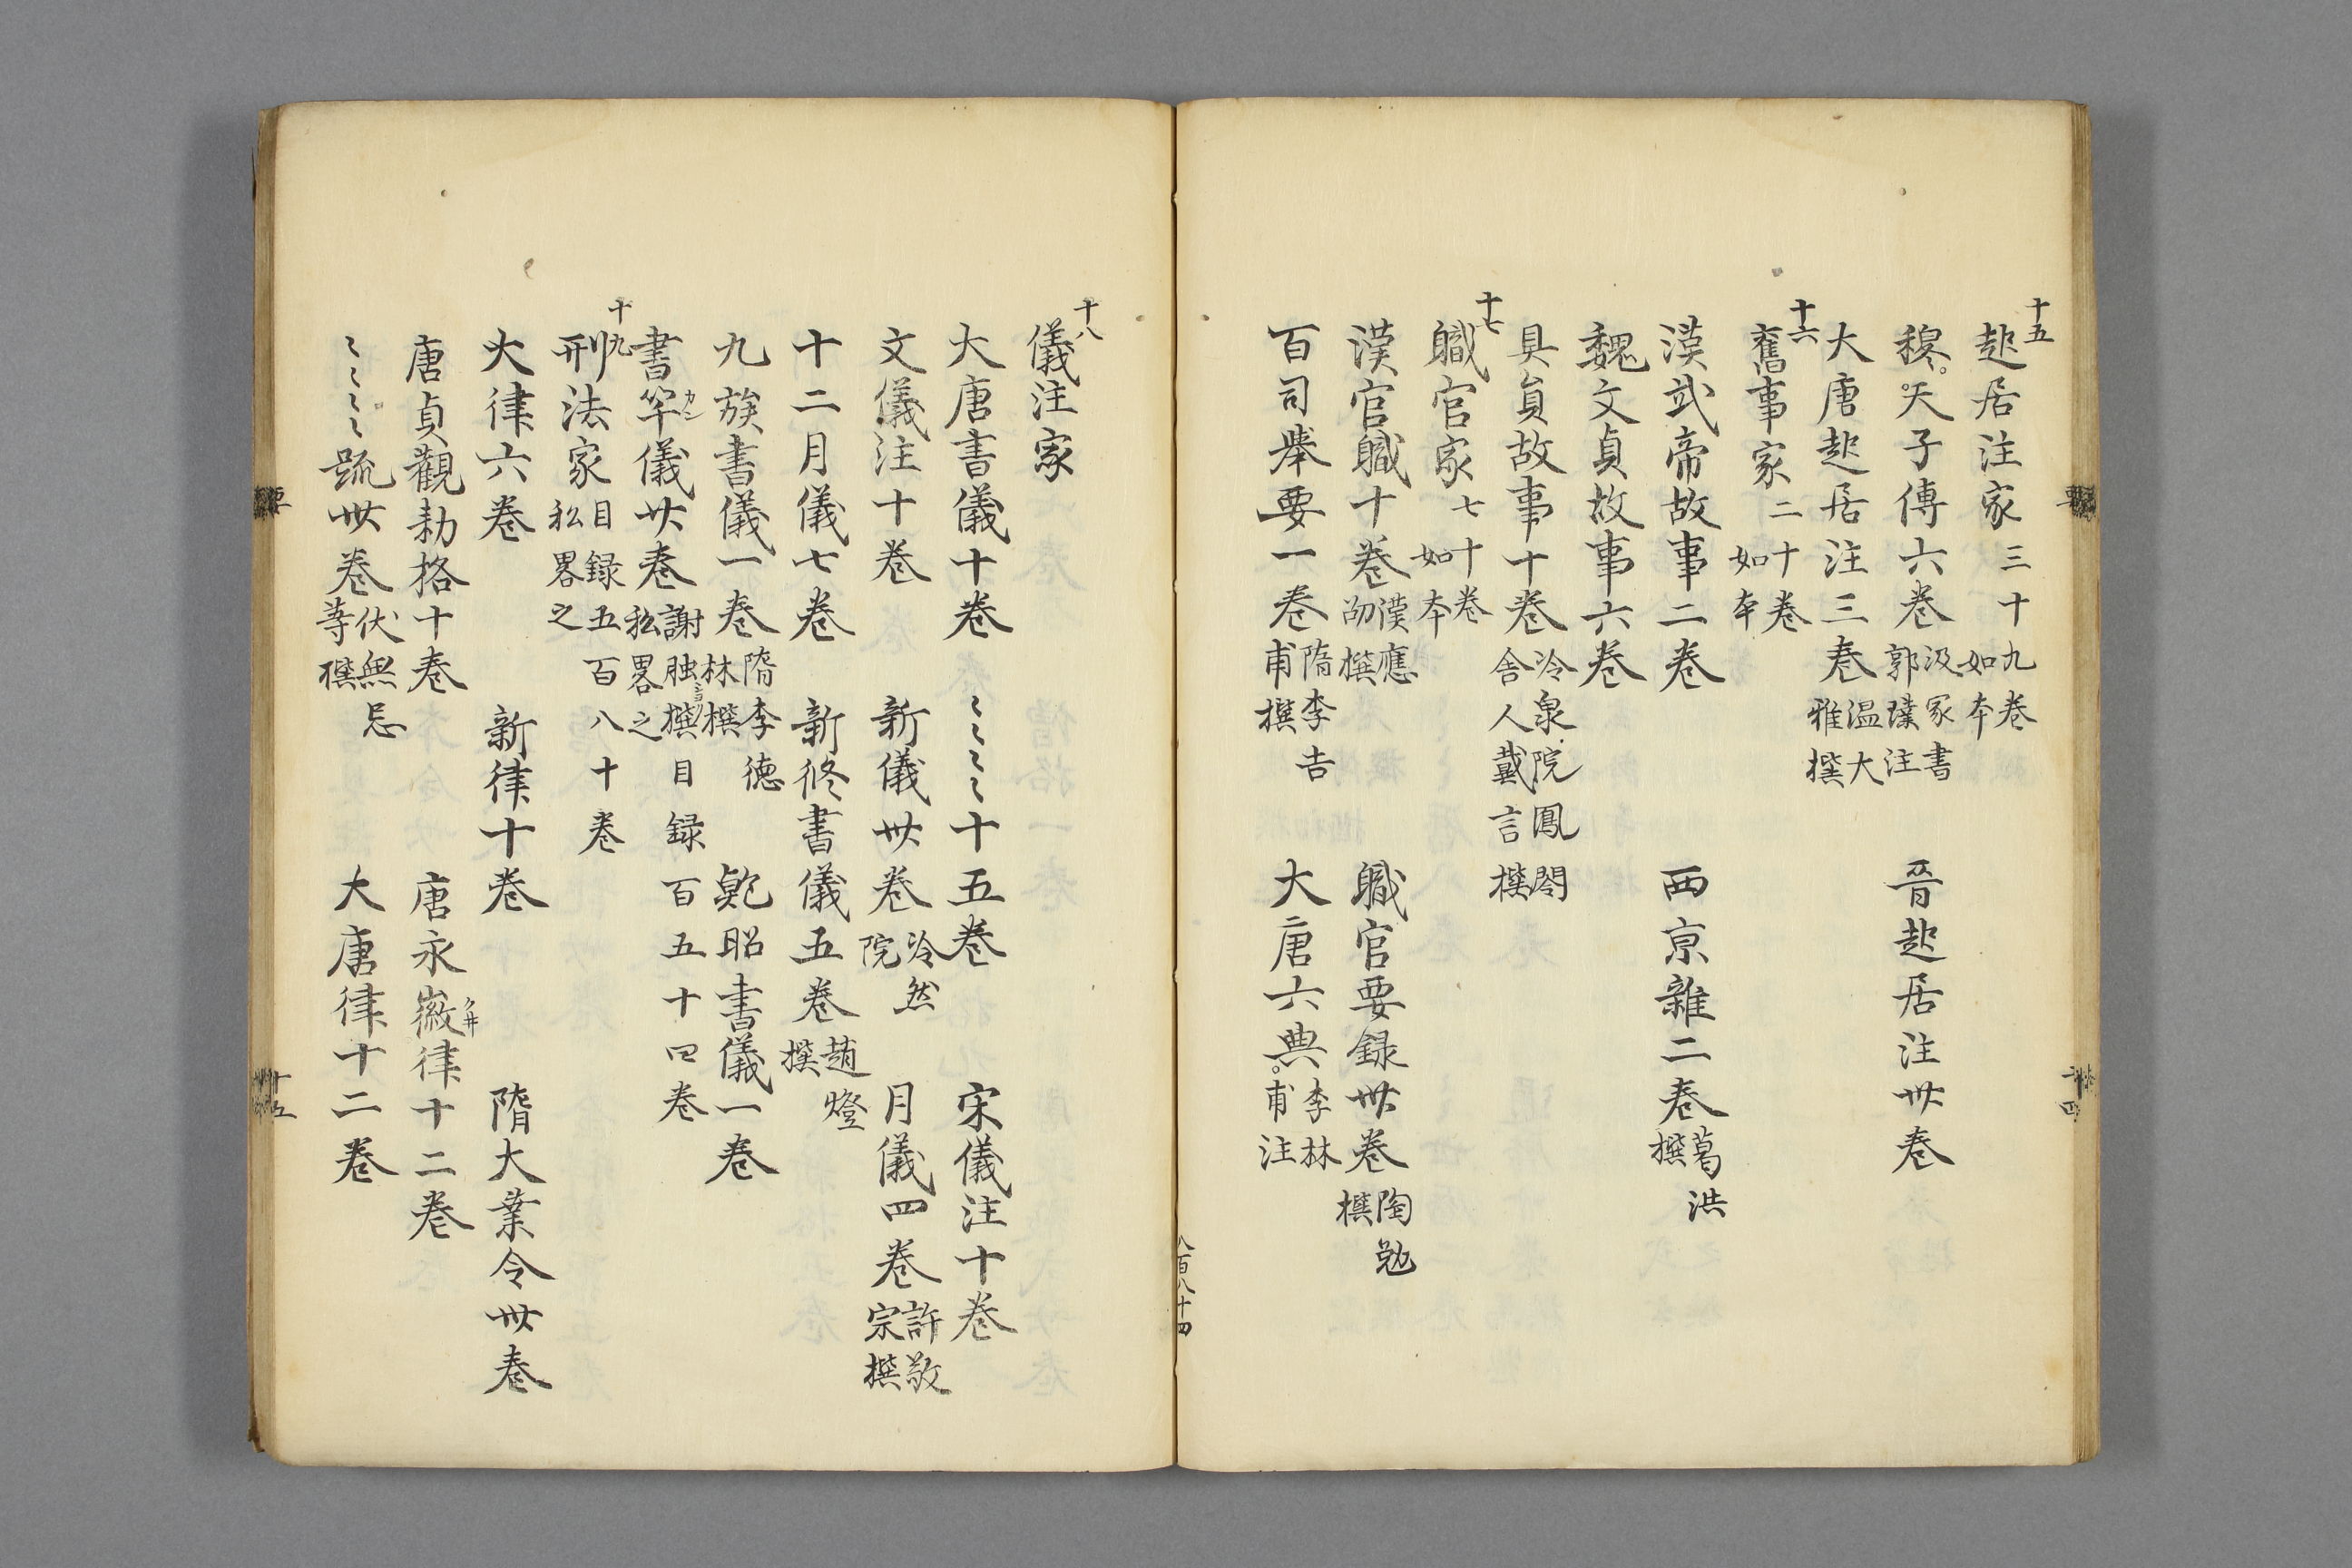 十五
起居注家 三十九卷 如本
穆天子傳六卷 汲冢書 郭璞注 晉起居注卅卷
大唐起居注三卷 温大雅撰
十六
舊事家 二十卷 如本
漢武帝故事二卷 西京雜二卷 葛洪撰
魏文貞故事六卷
具員故事十卷 冷泉院 鳳閣舍人戴言撰
十七
職官家 七十卷 如本
漢官職十卷 漢應劭撰 職官要録卅卷 陶勉撰
百司舉要一卷 隋李吉甫撰 大唐六典 李林甫注
八百八十四
十八
儀注家
大唐書儀十卷 〻〻〻〻十五卷 宋儀注十卷
文儀注十卷 新儀卅卷 冷然院 月儀四卷 許敬宗撰
十二月儀七卷 新修書儀五卷 趙燈撰
九族書儀一卷 隋李德林撰 鮑昭書儀一卷
書笇儀廿卷 謝朏撰 私畧之 目録百五十四卷
十九
刑法家 目録五百八十卷 私畧之
大律六卷 新律十卷 隋大業令卅卷
唐貞觀勅格十卷 唐永徽律十二卷
〻〻〻〻疏卅卷 伏無忌等撰 大唐律十二卷
十五